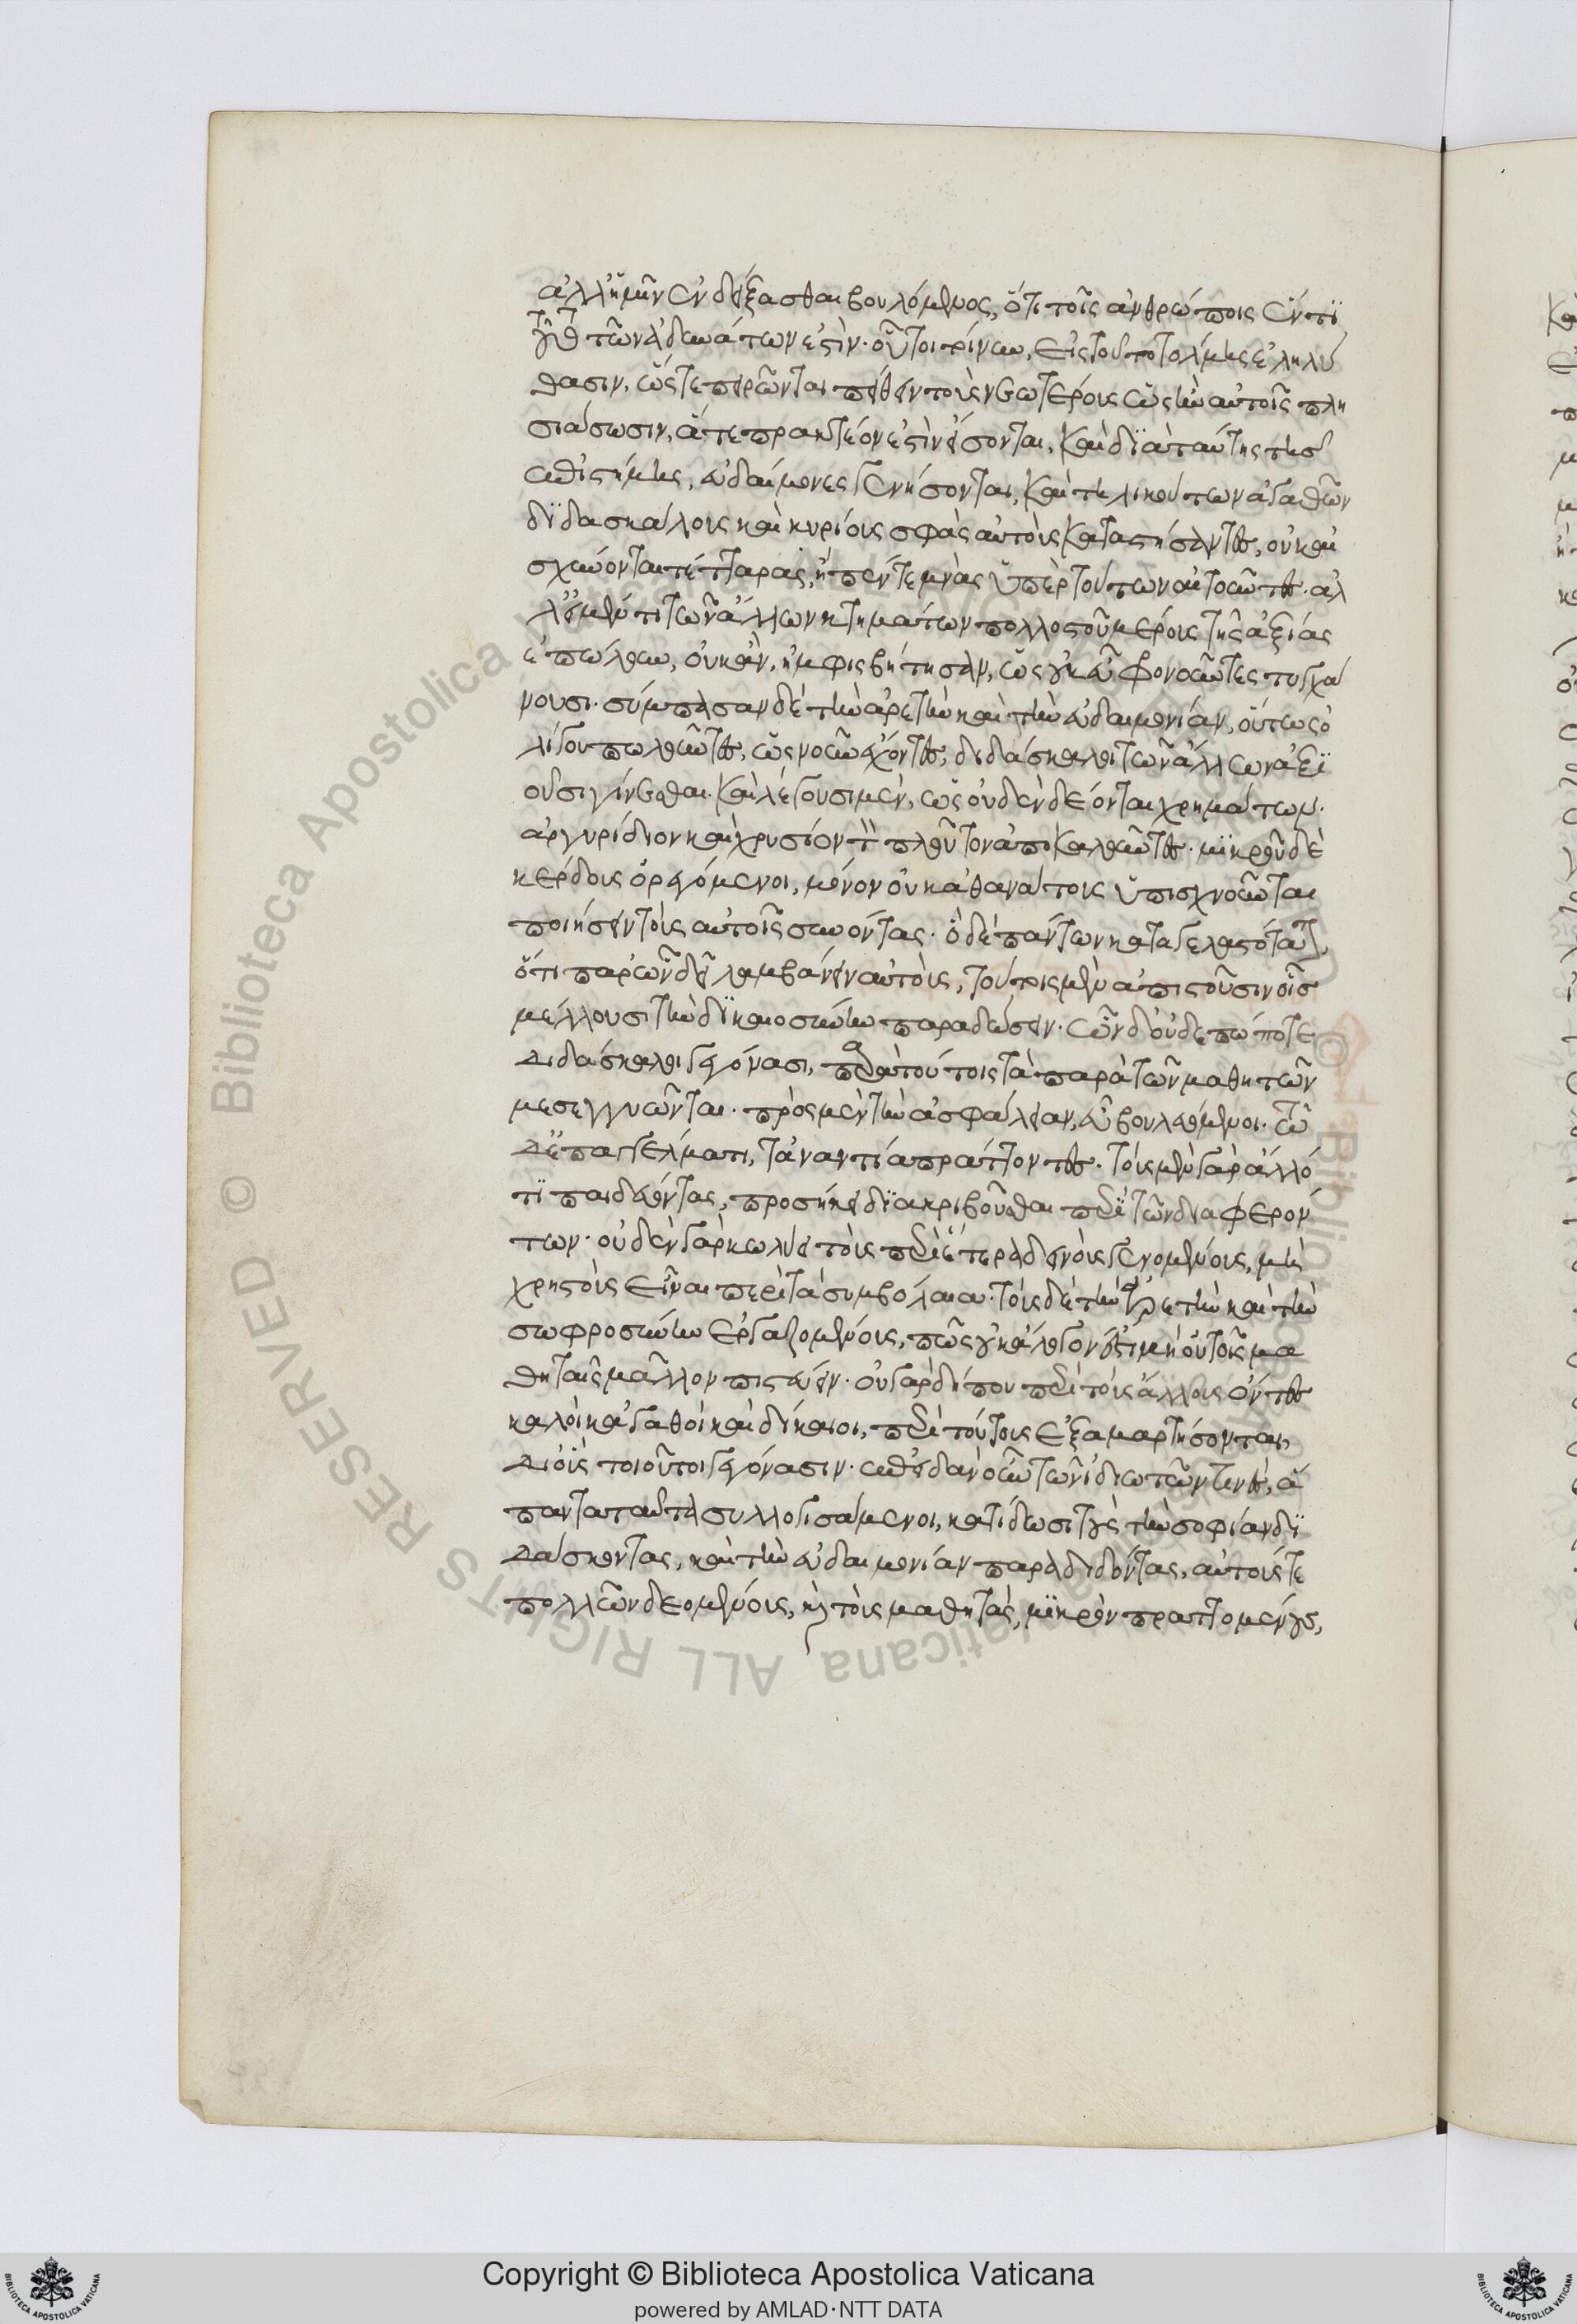 ἀλλ' ἡμῖν ἐνδείξασθαι βουλόμενος, ὅτι τοῖς ἀνθρώποις ἕν τι
τοῦτο τῶν ἀδυνάτων ἐστίν. οὗτοι τοίνυν, εἰς τοῦτο τόλμης ἐληλύ
θασιν, ὥστε πειρῶνται πείθειν τοὺς νεωτέρους ὡς ἢν αὐτοῖς πλη
σιάσωσιν, ἅ τε πρακτέον ἐστὶν εἴσονται, καὶ διὰ ταύτης τῆς
ἐπιστήμης, εὐδαίμονες γενήσονται, καὶ τηλικούτων ἀγαθῶν
διδασκάλους καὶ κυρίους σφᾶς αὐτοὺς καταστήσαντες, οὐκ αἰ
σχύνονται τέτταρας, ἢ πέντε μνᾶς ὑπὲρ τούτων αἰτοῦντες. ἀλ
λ' εἰ μέν τι τῶν ἄλλων κτημάτων πολλοστοῦ μέρους τῆς ἀξίας
ἐπώλουν, οὐκ ἂν, ἠμφισβήτησαν, ὡς εὖ φρονοῦντες τυγχά
νουσι. σύμπασαν δὲ τὴν ἀρετὴν καὶ τὴν εὐδαιμονίαν, οὕτως ὀ
λίγου πωλοῦντες, ὡς νοῦν ἔχοντες, διδάσκαλοι τῶν ἄλλων ἀξι
οῦσι γίνεσθαι. καὶ λέγουσι μὲν, ὡς οὐδὲν δέονται χρημάτων.
ἀργυρίδιον καὶ χρυσίον τὸν πλοῦτον ἀποκαλοῦντες. μικροῦ δὲ
κέρδους ὀρεγόμενοι, μόνον οὐκ ἀθανάτους ὑπισχνοῦνται
ποιήσειν τοὺς αὐτοῖς συνόντας. ὃ δὲ πάντων καταγελαστότατον,
ὅτι παρ' ὧν δεῖ λαμβάνειν αὐτοὺς, τούτοις μὲν ἀπιστοῦσιν οἷς
μέλλουσι τὴν δικαιοσύνην παραδώσειν. ὧν δ' οὐδεπώποτε
διδάσκαλοι γεγόνασι, παρὰ τούτοις τὰ παρὰ τῶν μαθητῶν
μεσεγγυῶνται. πρὸς μὲν τὴν ἀσφάλειαν, εὖ βουλευόμενοι. τῷ
δ' ἐπαγγέλματι, τἀναντία πράττοντες. τοὺς μὲν γὰρ ἄλλό
τι παιδεύοντας, προσήκει διακριβοῦσθαι περὶ τῶν διαφερόν
των. οὐδὲν γὰρ κωλύει τοὺς περὶ ἕτερα δεινοὺς γενομένους, μὴ
χρηστοὺς εἶναι περὶ τὰ συμβόλαια. τοὺς δὲ τὴν ἀρετὴν καὶ τὴν
σωφροσύνην ἐργαζομένους, πῶς οὐκ ἄλογόν ἐστι μὴ οὐ τοῖς μα
θηταῖς μᾶλλον πιστεύειν. οὐ γὰρ δήπου περὶ τοὺς ἄλλους ὄντες
καλοὶ κἀγαθοὶ καὶ δίκαιοι, περὶ τούτους ἐξαμαρτήσονται,
δι' οὓς τοιοῦτοι γεγόνασιν. ἐπειδὰν οὖν τῶν ἰδιωτῶν τινες, ἅ
παντα ταῦτα συλλογισάμενοι, κατίδωσι τοὺς τὴν σοφίαν δι
δάσκοντας, καὶ τὴν εὐδαιμονίαν παραδιδόντας, αὐτούς τε
πολλῶν δεομένους, καὶ τοὺς μαθητὰς, μικρὸν πραττομένους,